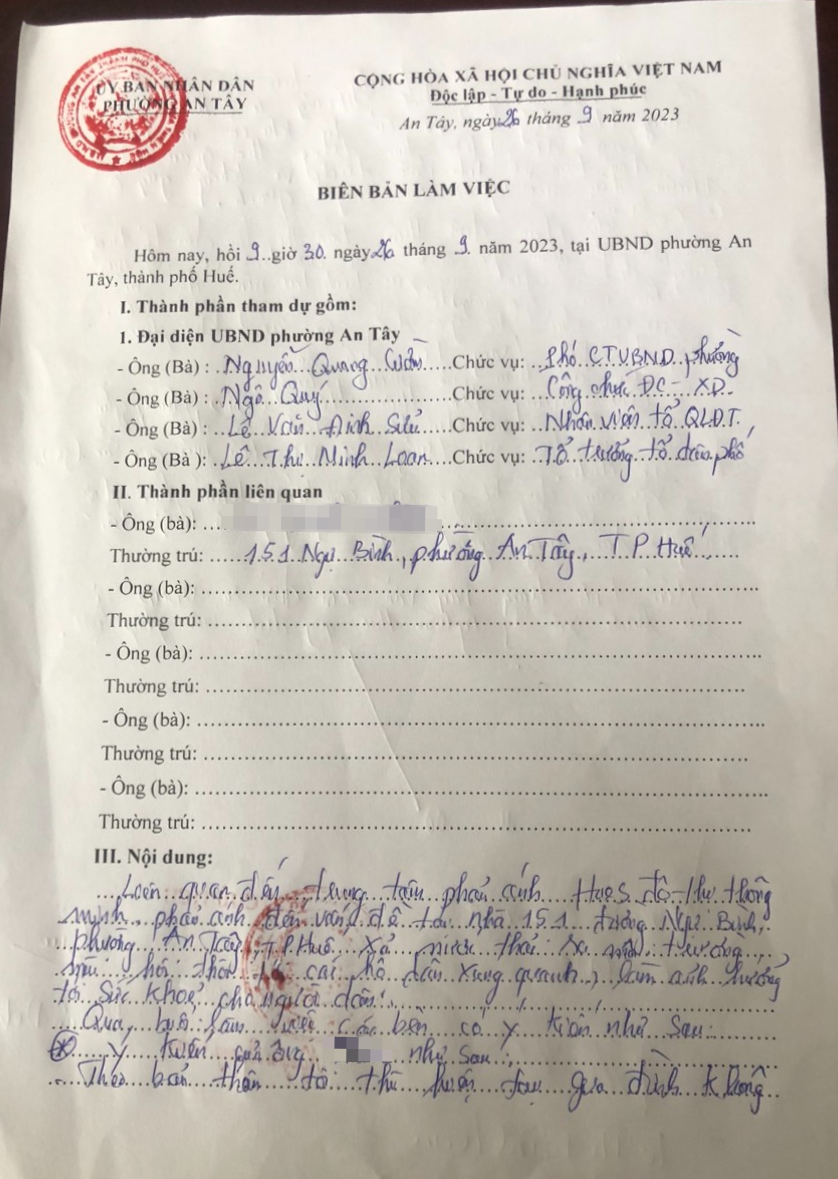 ỦY BAN NHÂN DÂN
PHƯỜNG AN TÂY
CỘNG HÒA XÃ HỘI CHỦ NGHĨA VIỆT NAM
Độc lập - Tự do - Hạnh phúc
An Tây, ngày 26 tháng 9 năm 2023
BIÊN BẢN LÀM VIỆC
Hôm nay, hồi 9 giờ 30 ngày 26 tháng 9 năm 2023, tại UBND phường An
Tây, thành phố Huế.
I. Thành phần tham dự gồm:
1. Đại diện UBND phường An Tây
- Ông (Bà) : Nguyễn Quang Chức vụ: Phó CTUBND phường
- Ông (Bà) : Ngô Quý Chức vụ: Công chức ĐC - XD
- Ông (Bà) : Lê Văn Đình Chức vụ: Nhân viên tổ QLĐT
- Ông (Bà ): Lê Thị Minh Loan Chức vụ: Tổ trưởng tổ dân phố
II. Thành phần liên quan
- Ông (bà):
Thường trú: 151 Ngự Bình, phường An Tây, TP Huế
- Ông (bà):
Thường trú:
- Ông (bà):
Thường trú:
- Ông (bà):
Thường trú:
- Ông (bà):
Thường trú:
III. Nội dung:
Liên quan đến trung tâm phản ánh HueS đô thị thông
minh phản ánh đến vấn đề tại nhà 151 đường Ngự Bình,
phường An Tây, TP Huế xả nước thải ra môi trường,
mùi hôi thối các hộ dân xung quanh, làm ảnh hưởng
tới sức khoẻ cho người dân.
Qua buổi làm việc các bên có ý kiến như sau:
ý kiến của ông như sau:
Theo bản thân tôi thì hiện tại gia đình không